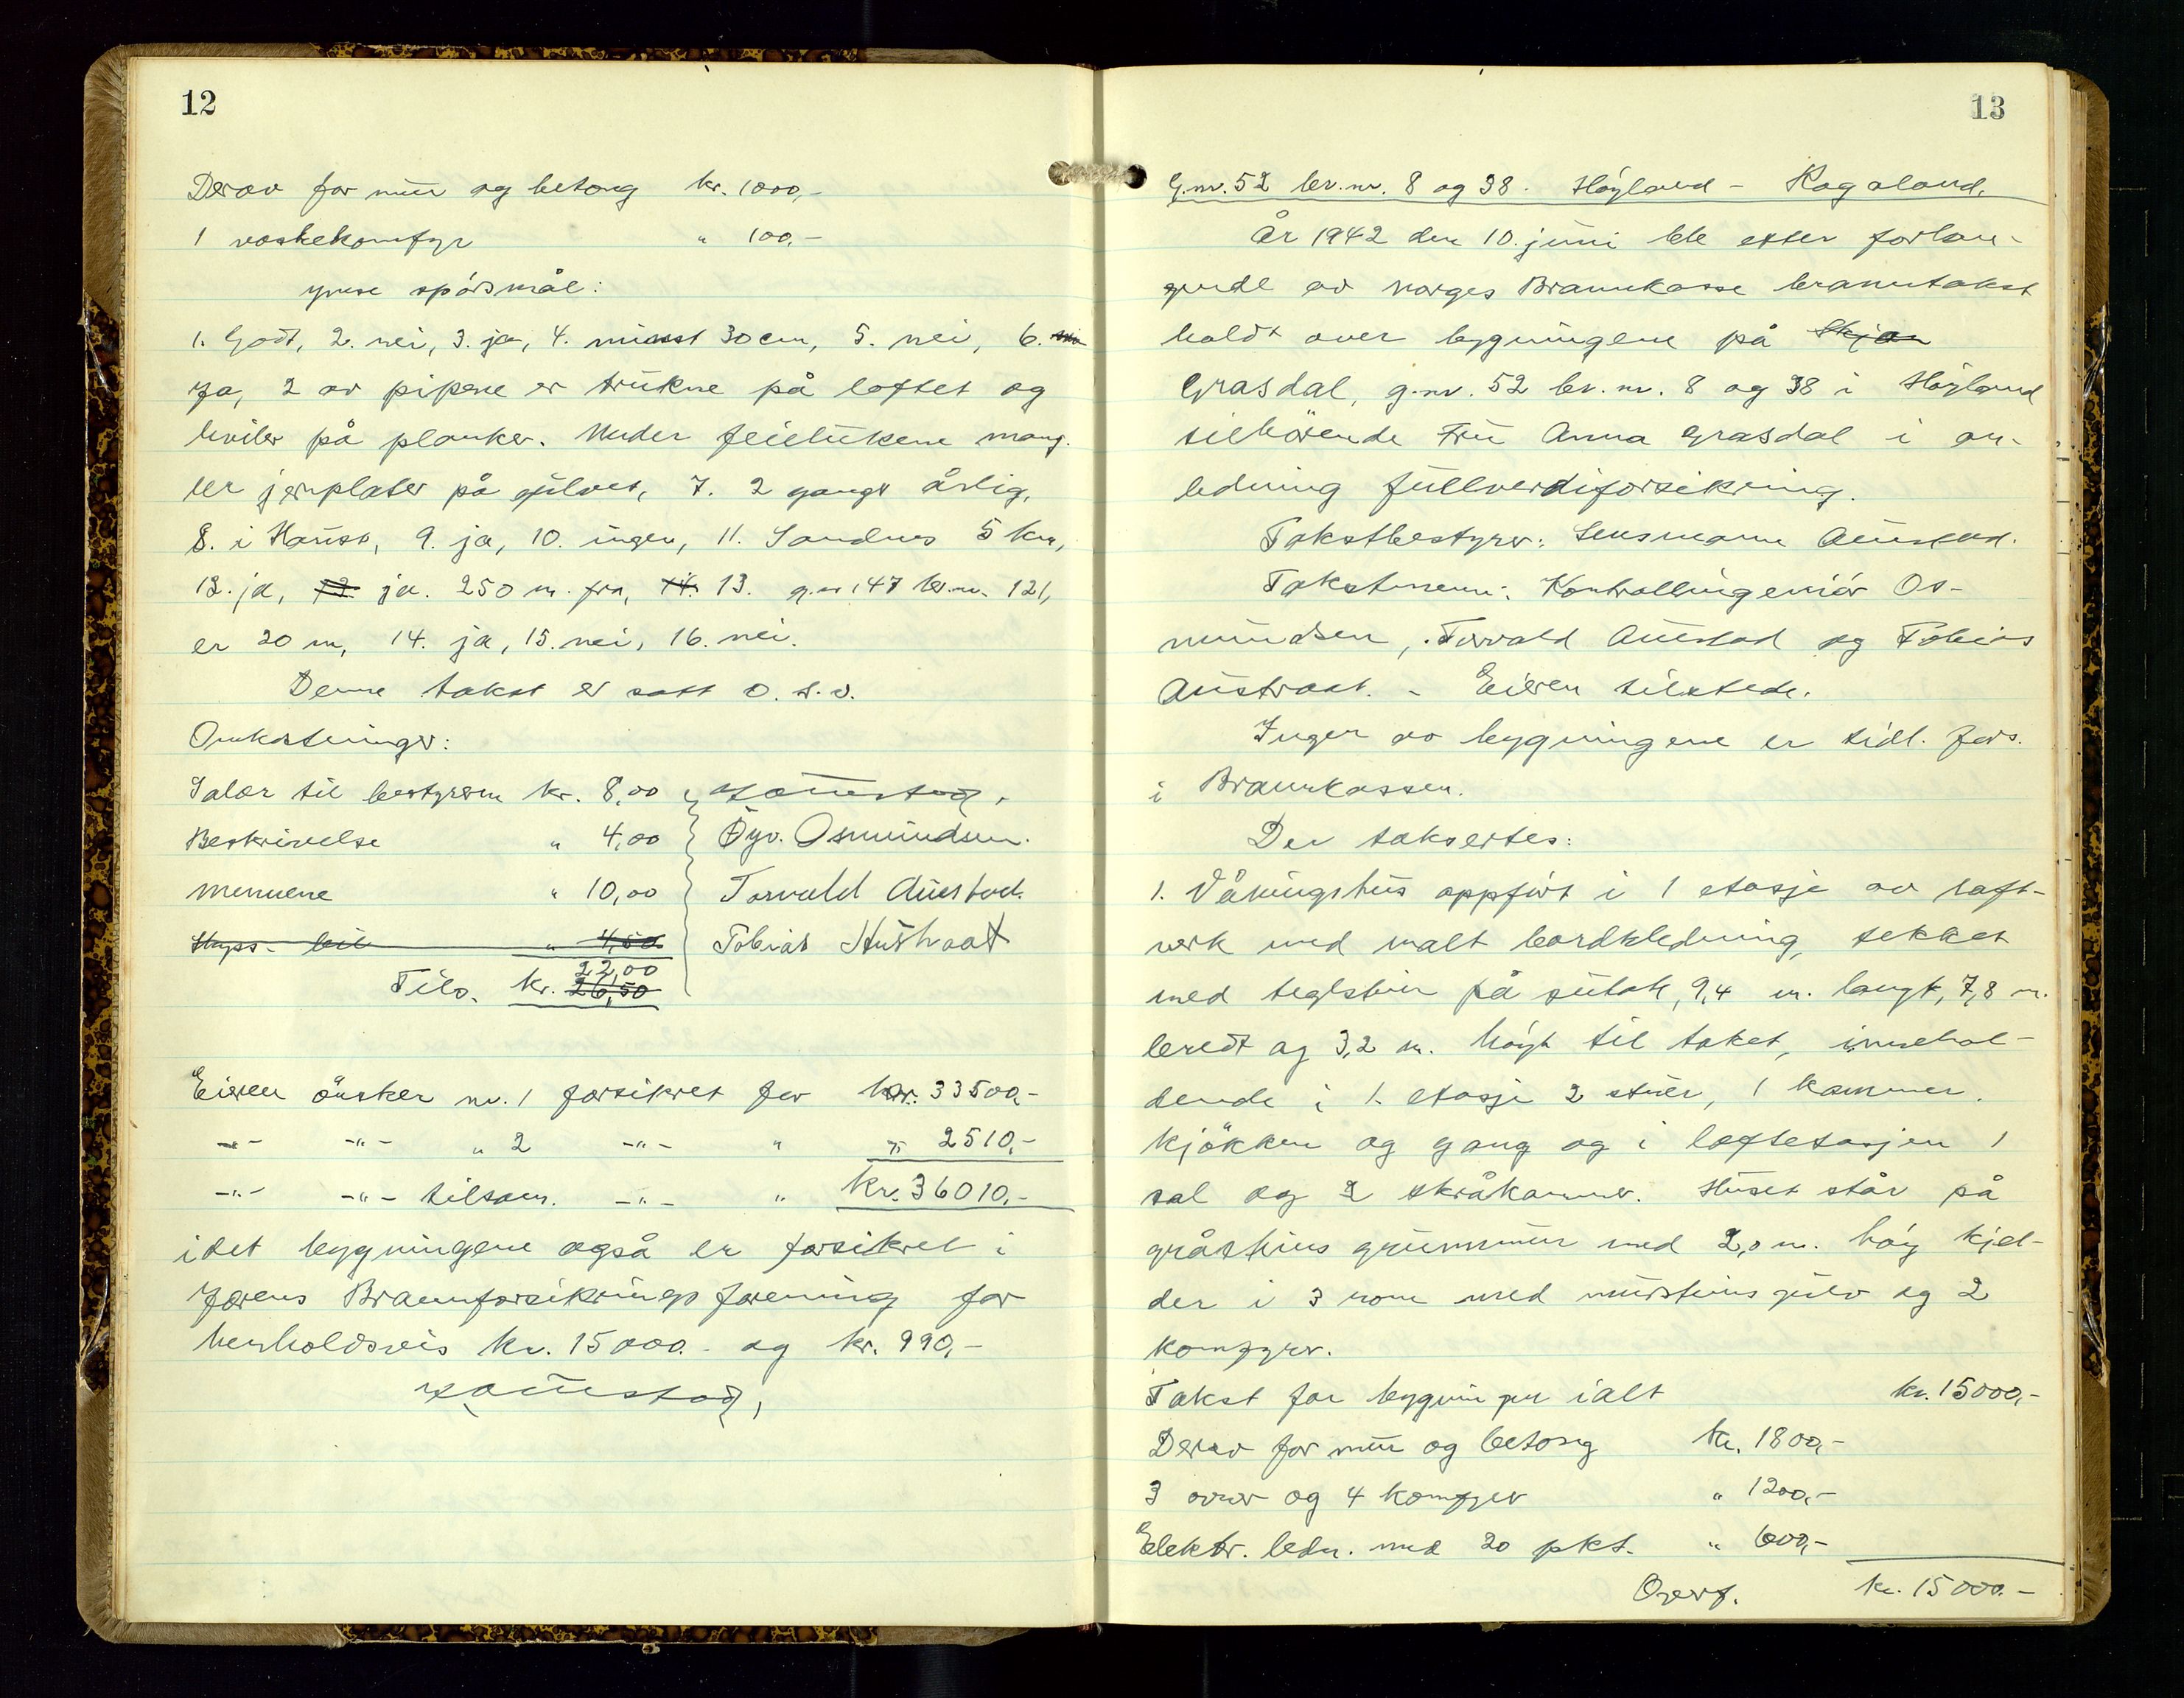 12
Derav for mur og betong kr. 1000,-
1 vaskekomfyr " 100,-
Ymse spørsmål:
1. Godt, 2. nei, 3. ja, 4. minst 30 cm, 5. nei, 6.
Ja, 2 av pipene er trukne på loftet og
hviler på planker. Under feielukene mang-
ler jernplater på gulvet, 7. 2 gange årlig,
8. i Høyl., 9. ja, 10. ingen, 11. Sandnes 5 km,
12. ja, 13. ja. 250 m. fra, 14. 13. g.nr. 47 br.nr. 121,
er 20 m, 14. ja, 15. nei, 16. nei.
Denne takst er satt o.s.v.
Omkostninger:
Salær til bestyreren kr. 8,00
Beskrivelse " 4,00 Øyv. Osmundsen.
Mennene " 10,00 Torvald Austad.
Skyss- bil " 4,50 Tobias Austraat
22,00
Tils. kr. 26,50
Eieren ønsker nr. 1 forsikret for kr. 33500,-
-"- -"- " 2 -"- " " 2510,-
-"- -"- tilsam. -"- " kr. 36010,-
idet bygningene også er forsikret i
Jærens Brannforsikringsforening for
henholdsvis kr. 15000.- og kr. 990,-
13
G.nr. 52 br.nr. 8 og 38. Høyland - Rogaland.
År 1942 den 10. juni ble etter forlan-
gende av Norges Brannkasse branntakst
holdt over bygningene på
Grasdal, g.nr. 52 br. nr. 8 og 38 i Høyland
tilhörende Fru Anna Grasdal i an-
ledning fullverdiforsikring.
Takstbestyrer: Lensmann Austad.
Takstmenn: Kontrollingeniør Os-
mundsen, Torvald Austad og Tobias
Austraat. - Eieren tilstede.
Ingen av bygningene er tidl. fors.
i Brannkassen.
Der taksertes:
1. Våningshus oppført i 1 etasje av laft-
verk med malt bordkledning, tekket
med teglstein på sutak, 9,4 m. langt, 7,8 m.
bredt og 3,2 m. høyt til taket, innehol-
dende i 1. etasje 2 stuer, 1 kammer.
kjøkken og gang og i loftetasjen 1
sal og 2 skråkammer. Huset står på
gråsteins grunnmur med 2,0 m. høy kjel-
der i 3 rom med mursteins gulv og 2
komfyrer.
Takst for bygningen ialt kr. 15000,-
Derav for mur og betong kr. 1800,-
3 ovner og 4 komfyrer " 1200,-
Elektr. ledn. med 20 pkt. " 600,-
Overf. kr. 15000.-